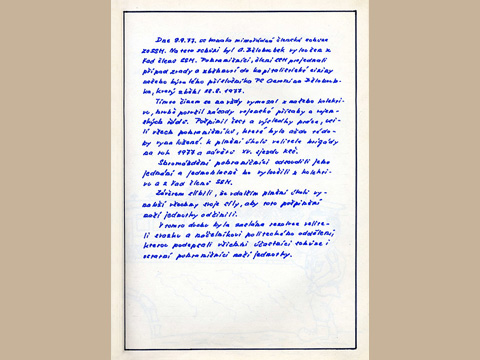 Dne 9.9.77. se konala mimořádná členská schůze
ZO SSM. Na této schůzi byl O. Bělohubek vyloučen z
řad členů SSM. Pohraničníci, členi SSM projednali
případ zrady a zběhnutí do kapitalistické ciziny
našeho bývalého příslušníka PS Oarnina
který zběhl 28.8.1977.
Tímto činem se navždy vymazal z našeho kolekti-
vu, hrubě porušil zásady vojenské přísahy a vojen-
ských řádů. Pošpinil čest a výsledky práce, úsi-
lí všech pohraničníků, které bylo vždy
vynaloženo. k plnění úkolů velitele brigády
na rok 1977 a závěrů XV. sjezdu KSČ.
Shromáždění pohraničníci odsoudili jeho
jednání a jednohlasně ho vyloučili z kolekti-
vu a z řad členů SSM.
Závěrem slíbili, že dalším plnění úkolů vy-
naloží všechny svoje síly, aby toto pošpinění
naší jednotky odčinili.
V tomto duchu byla zaslána rezoluce velite-
li svazku a náčelníkovi politického oddělení,
kterou podepsali všichni účastníci schůze i
ostatní pohraničníci naší jednotky.